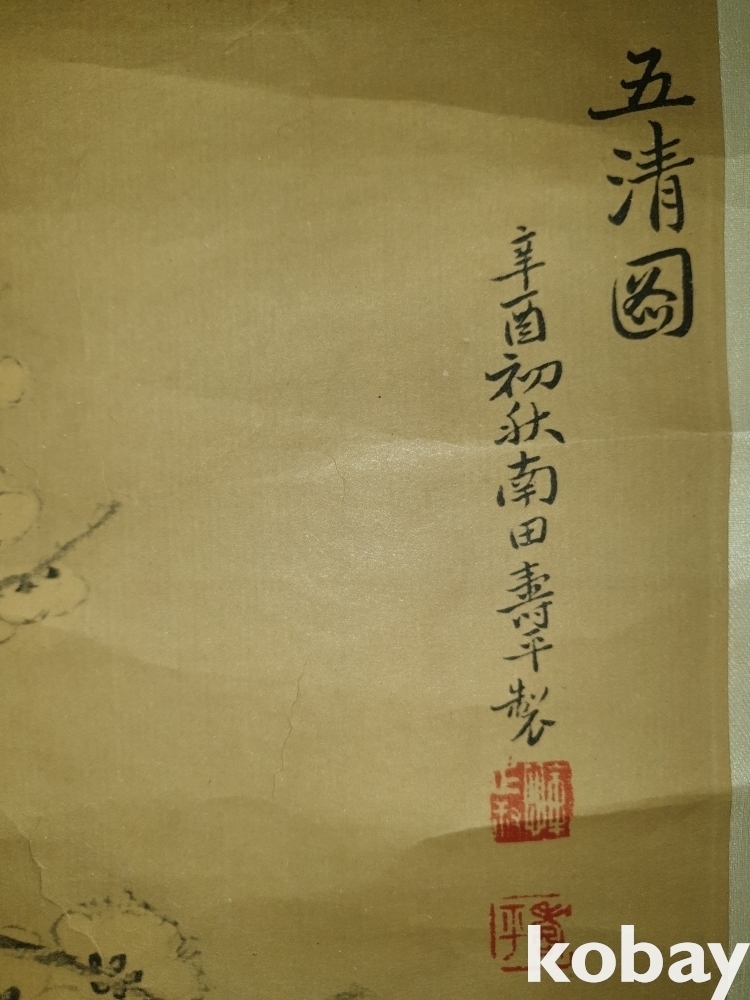 五清圖
辛酉初秋南田壽平製
壽平
kobay